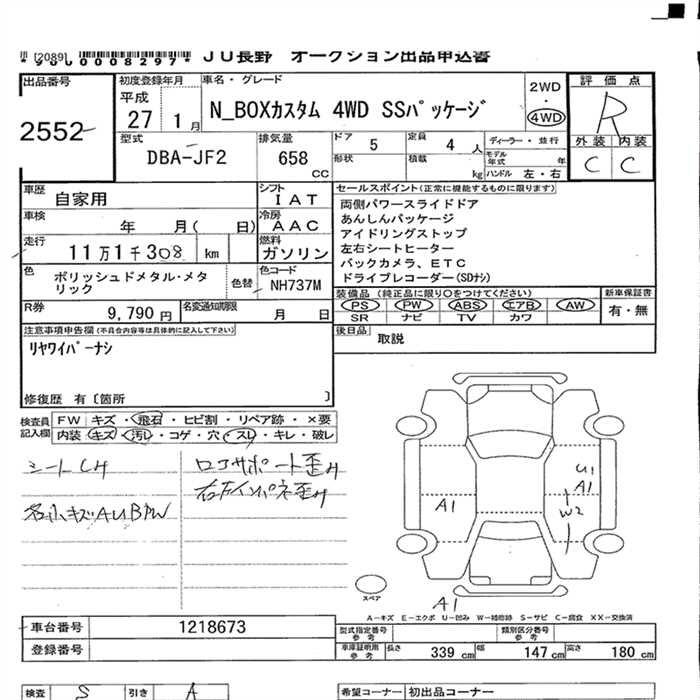 [2089]
JU長野 オークション出品申込書
出品番号 初度登録年月 車名・グレード 2WD 評価点
2552 平成 27 1月 N_BOXカスタム 4WD SSパッケージ 4WD R
型式 排気量 ドア 5 定員 4人 ディーラー・並行 外装 内装
DBA-JF2 658 CC 形状 積載 kg モデル年式 年 ハンドル 左・右 C C
車歴 自家用 シフト IAT セールスポイント(正常に機能するものに限ります)
車検 年 月( 日) 冷房 AAC
走行 11万1千308 km 燃料 ガソリン
色 ポリッシュドメタル・メタリック 色替 色コード NH737M
両側パワースライドドア
あんしんパッケージ
アイドリングストップ
左右シートヒーター
バックカメラ、ETC
ドライブレコーダー(SDナシ)
R券 9,790円 名変通知期限 月 日
装備品(純正品に限り○をつけてください) 新車保証書
PS PW ABS エアB AW 有・無
SR ナビ TV カワ
注意事項申告欄(不具合内容等は具体的に記入して下さい)
リヤワイパーナシ
後日品 取説
修復歴 有〔箇所 〕
検査員記入欄 FW キズ・飛石・ヒビ割・リペア跡・×要
内装 キズ・汚レ・コゲ・穴・スレ・キレ・破レ
ロアサポート歪み
A1
U1
A1
W2
A1
スペア
A−キズ E−エクボ U−凹み W−補修跡 S−サビ C−腐食 XX−交換済
車台番号 1218673 型式指定番号参考 類別区分番号参考
登録番号 車庫証明用参考 長さ 339cm 幅 147cm 高さ 180cm
検査 S 引き A 希望コーナー 初出品コーナー